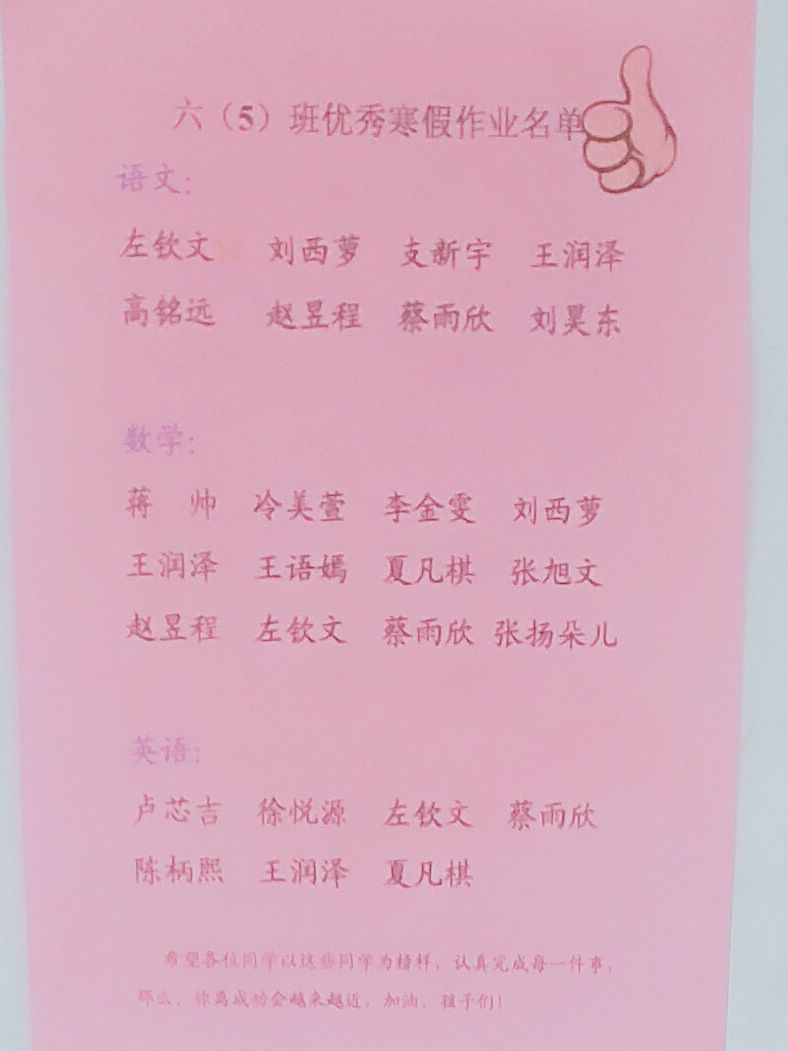 六（5）班优秀寒假作业名单
语文：
左钦文 刘西萝 支新宇 王润泽
高铭远 赵昱程 蔡雨欣 刘昊东
数学：
蒋 帅 冷美萱 李金雯 刘西萝
王润泽 王语嫣 夏凡棋 张旭文
赵昱程 左钦文 蔡雨欣 张扬朵儿
英语：
卢芯吉 徐悦源 左钦文 蔡雨欣
陈柄熙 王润泽 夏凡棋
希望各位同学以这些同学为榜样，认真完成每一件事，
那么，你离成功会越来越近。加油，孩子们！